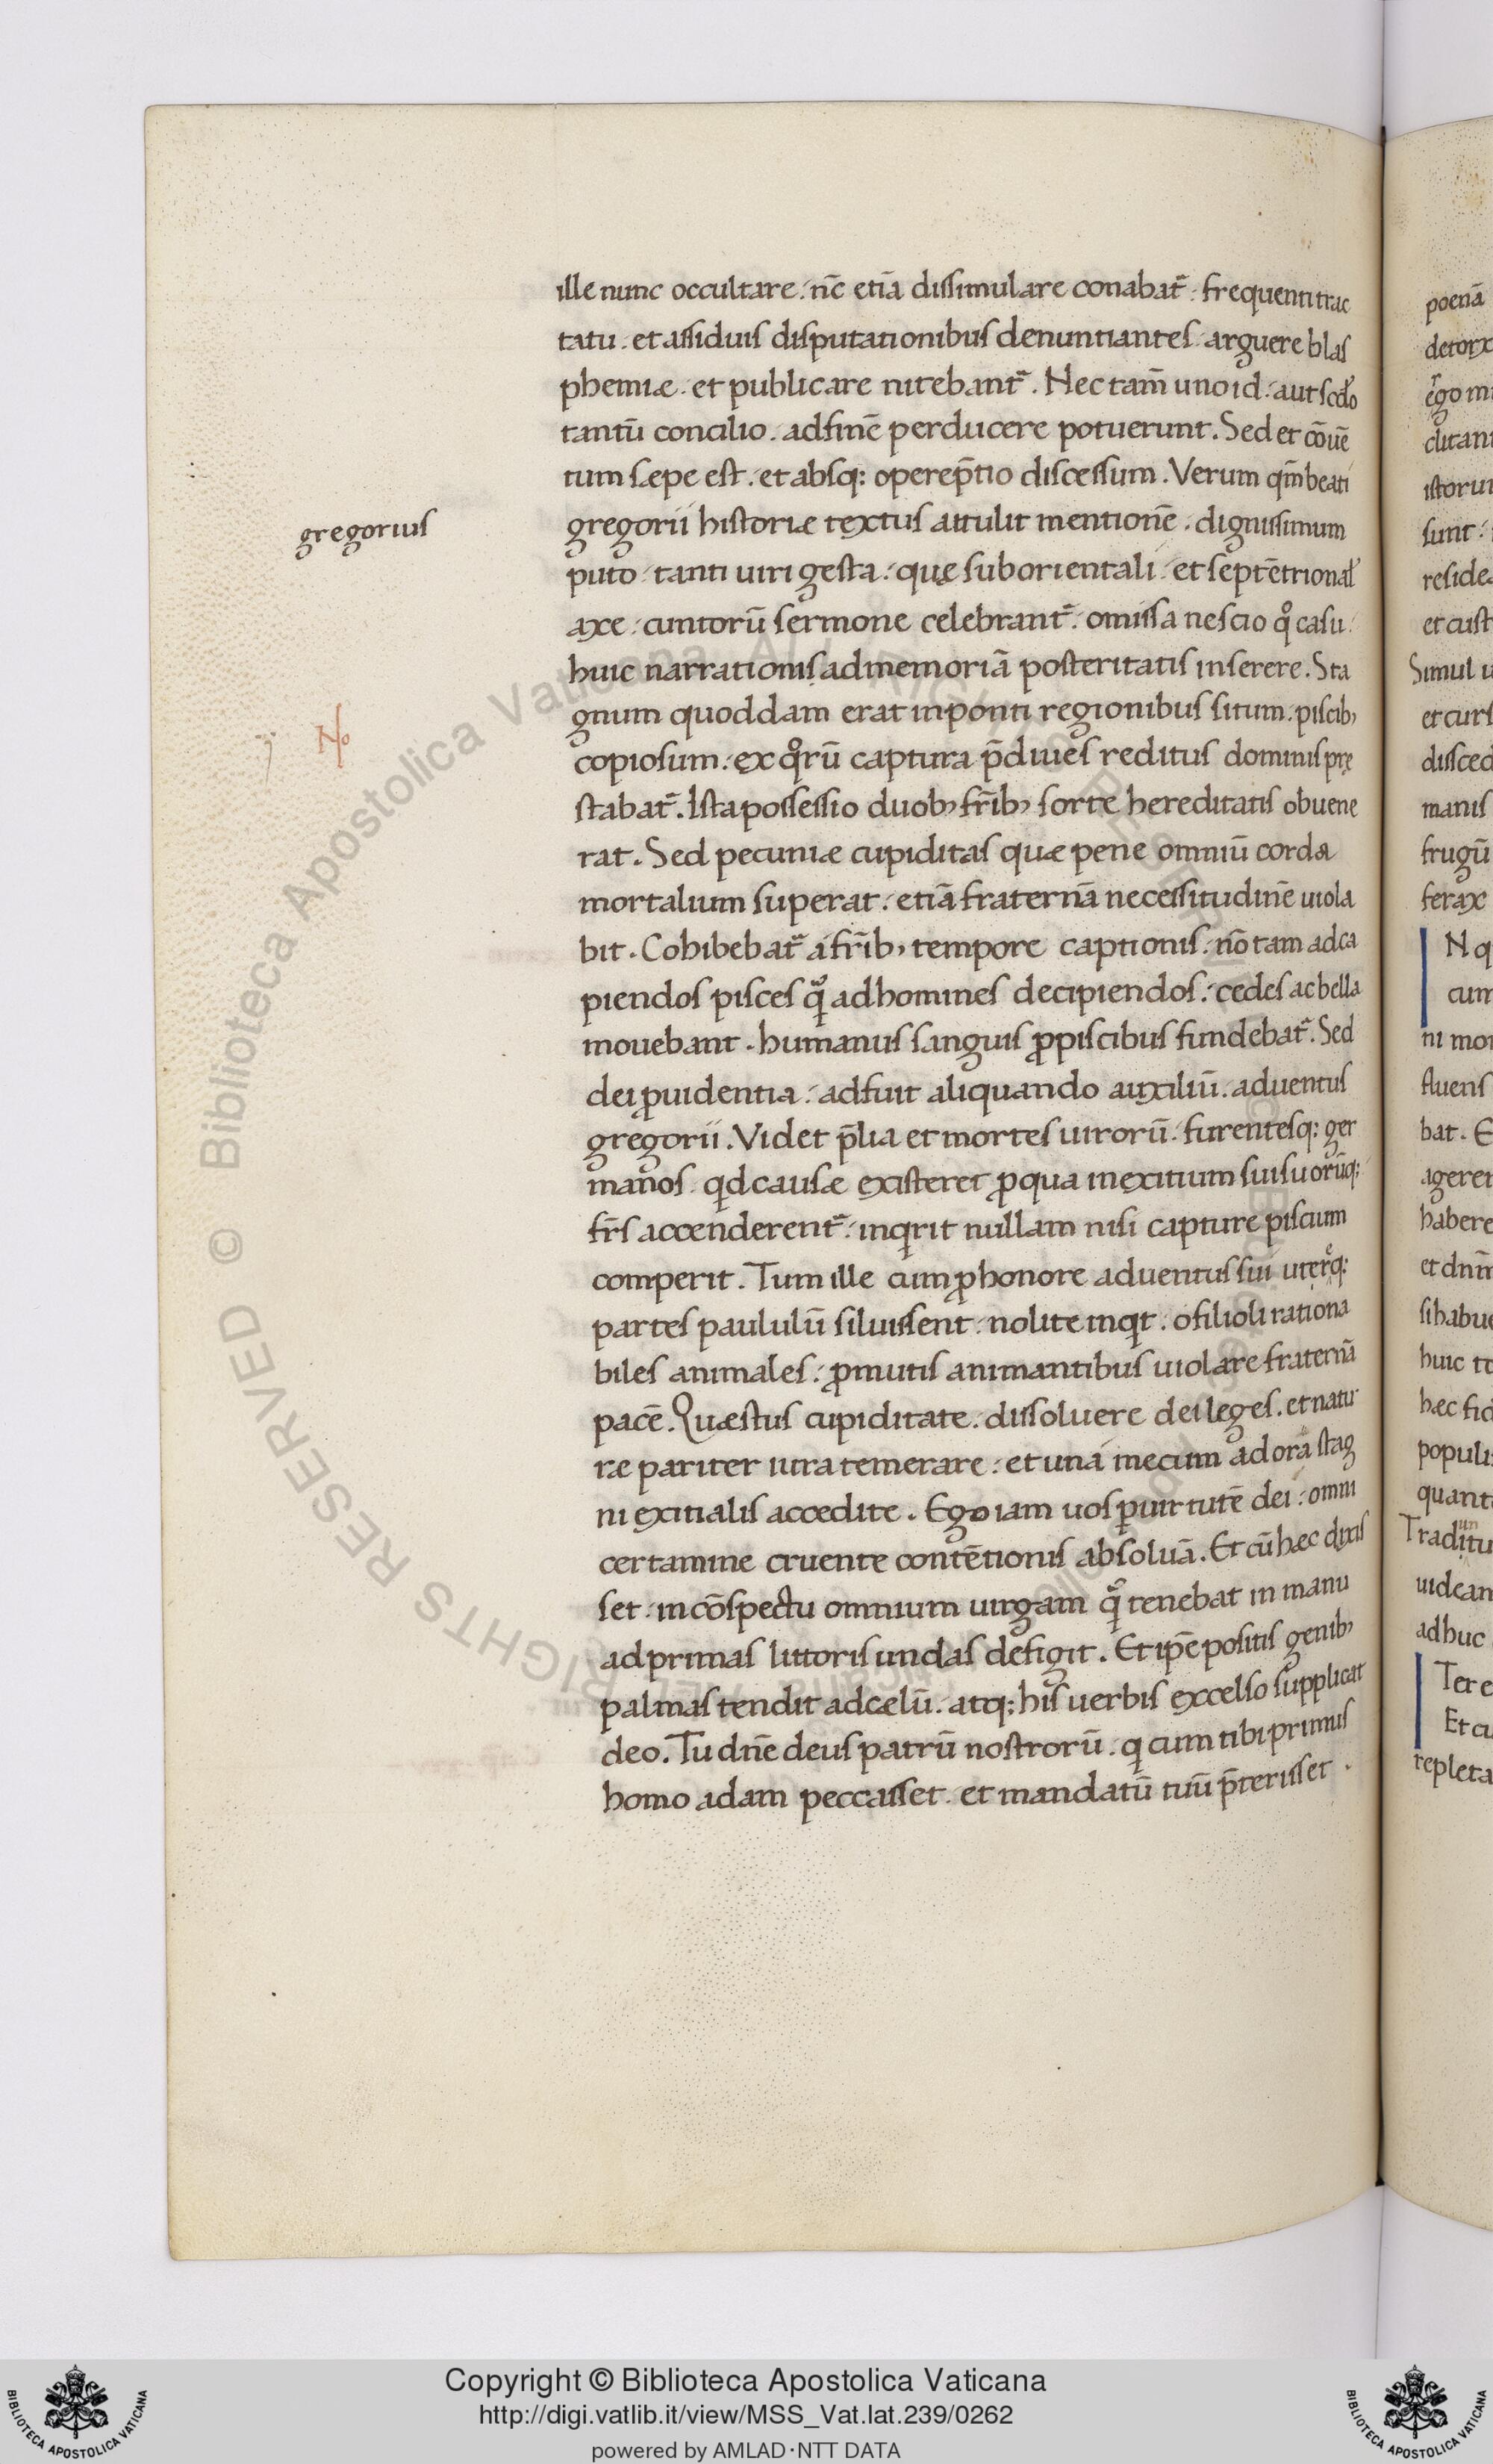 ille nunc occultare. nc̄ etiā dissimulare conabat᷑. frequenti trac
tatu. et assiduis disputationibus denuntiantes. arguere blas
phemiæ. et publicare nitebant᷑. Nec tam̄ uno id. aut scdo
tantū concilio. ad finē perducere potuerunt. Sed et cōuē
tum sæpe est. et absq; operep̄tio discessum. Verum qm̄ beati
gregorius
gregorii historiæ textus attulit mentionē. dignissimum
puto. tanti uiri gesta. quę sub orientali. et septētrional
axe. cuntorū sermone celebrant᷑. omissa nescio qͦ casu.
huic narrationis ad memoriā posteritatis inserere. Sta
gnum quoddam erat in ponti regionibus situm. piscib;
No
copiosum. ex qͦrū captura p̄diues reditus dominis prę
stabat᷑. Ista possessio duob; fr̄ib; sorte hereditatis obuene
rat. Sed pecuniæ cupiditas quæ pene omniū corda
mortalium superat. etiā fraternā necessitudinē uiola
bit. Cohibebat᷑ a fr̄ib; tempore captionis. nō tam ad ca
piendos pisces qͣ̄ ad homines decipiendos. cedes ac bella
mouebant. humanus sanguis ꝓ piscibus fundebat᷑. Sed
dei ꝓuidentia. adfuit aliquando auxiliū. aduentus
gregorii. Videt p̄lia et mortes uirorū. furentesq; ger
manos. qd causæ existeret ꝓ qua in exitium sui suorūq;
fr̄s accenderent᷑. inqͥrit nullam nisi capture piscium
comperit. Tum ille cum ꝓ honore aduentus sui uterq;
partes paululū siluissent. nolite inqͥt. o filioli rationa
biles animales. ꝓ mutis animantibus uiolare fraternā
pacē. Quæstus cupiditate. dissoluere dei leges. et natu
ræ pariter iura temerare. et una mecum ad ora stag
ni exitialis accedite. Ego iam uos ꝑ uirtutē dei. omni
certamine cruente contētionis absoluā. Et cū hæc dixis
set. in cōspectu omnium uirgam qͣ̄ tenebat in manu
ad primas littoris undas defigit. Et ip̄e positis genib;
palmas tendit ad cælū. atq; his uerbis excelso supplicat
deo. Tu dn̄e deus patrū nostrorū. q cum tibi primus
homo adam peccasset. et mandatū tuū p̄terisset.
poenā
detorx
clitant
istoru
sunt
reside
et cust
Simul u
et curs
disced
manis
frugū
ferax
N q
cum
ni mor
fluens
bat. E
agerer
habere
et dnm̄
si habue
huic to
hæc fid
populi
quant
Traditu
uidean
adhuc
Ter e
Et cu
repleta
Biblioteca Apostolica Vaticana ALL RIGHTS RESERVED ©
Copyright © Biblioteca Apostolica Vaticana
http://digi.vatlib.it/view/MSS_Vat.lat.239/0262
powered by AMLAD·NTT DATA
BIBLIOTECA APOSTOLICA VATICANA
BIBLIOTECA APOSTOLICA VATICANA